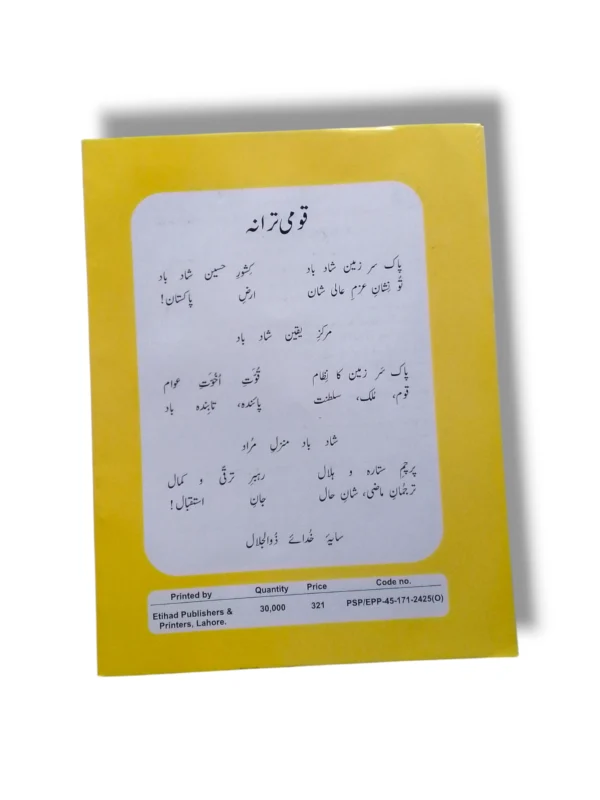 قومی ترانہ
پاک سر زمین شاد باد کِشورِ حسین شاد باد
تُو نِشانِ عزمِ عالی شان ارضِ پاکستان!
مرکزِ یقین شاد باد
پاک سَر زمین کا نِظام قُوّتِ اُخُوّتِ عوام
قوم، مُلک، سلطنت پائندہ، تابِندہ باد
شاد باد منزلِ مُراد
پرچمِ ستارہ و ہلال رہبرِ ترقّی و کمال
ترجُمانِ ماضی، شانِ حال جانِ استقبال!
سایۂ خُدائے ذُوالجلال
Printed by Quantity Price Code no.
Etihad Publishers & 30,000 321 PSP/EPP-45-171-2425(O)
Printers, Lahore.